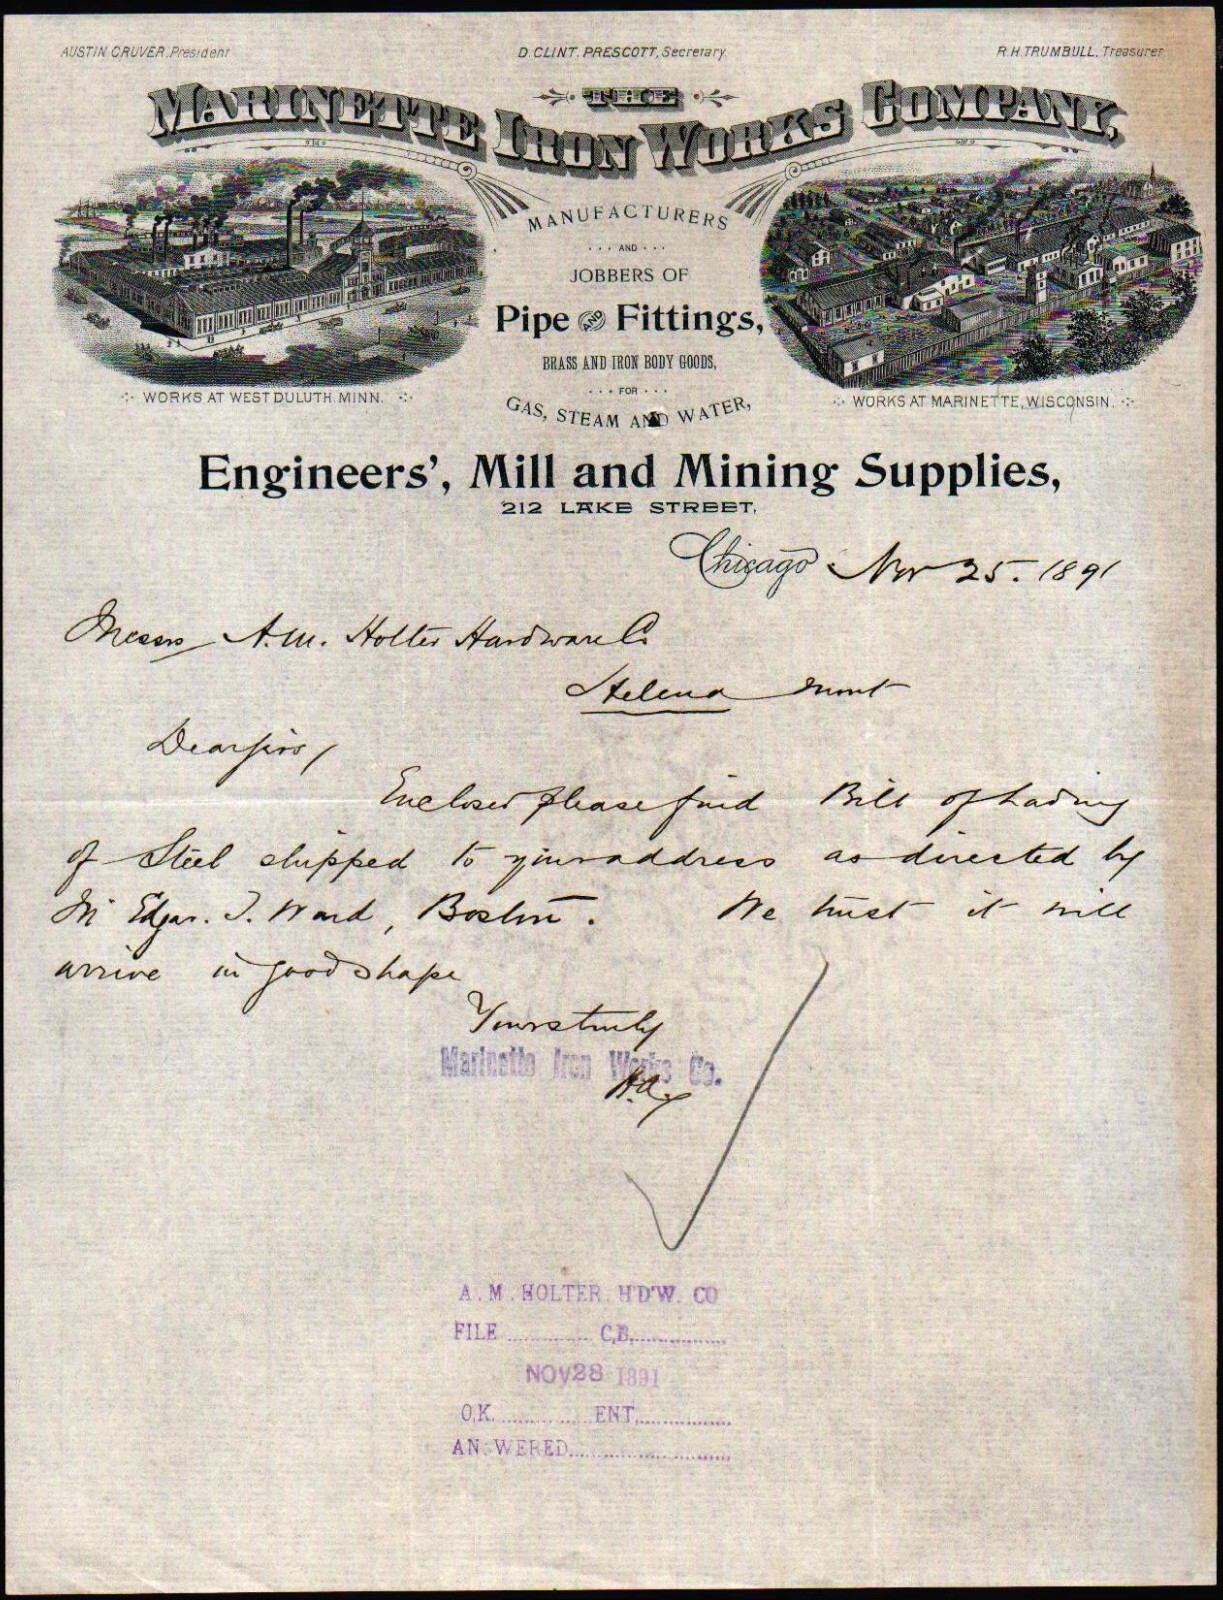 AUSTIN CRUVER, President
D. CLINT. PRESCOTT, Secretary.
R. H. TRUMBULL, Treasurer
THE
MARINETTE IRON WORKS COMPANY,
MANUFACTURERS
AND
JOBBERS OF
Pipe AND Fittings,
BRASS AND IRON BODY GOODS,
FOR
GAS, STEAM AND WATER,
WORKS AT WEST DULUTH. MINN.
WORKS AT MARINETTE, WISCONSIN.
Engineers', Mill and Mining Supplies,
212 LAKE STREET.
Chicago Nov 25. 1891
Messrs A. M. Holter Hardware Co
Helena Mont
Dear Sirs,
Enclosed please find Bill of Lading
of Steel shipped to your address as directed by
Mr Edgar. T. Ward, Boston. We trust it will
arrive in good shape
Yours truly
Marinette Iron Works Co.
A. M. HOLTER H'D'W. CO
FILE C.B.
NOV 28 1891
O.K. ENT.
AN WERED